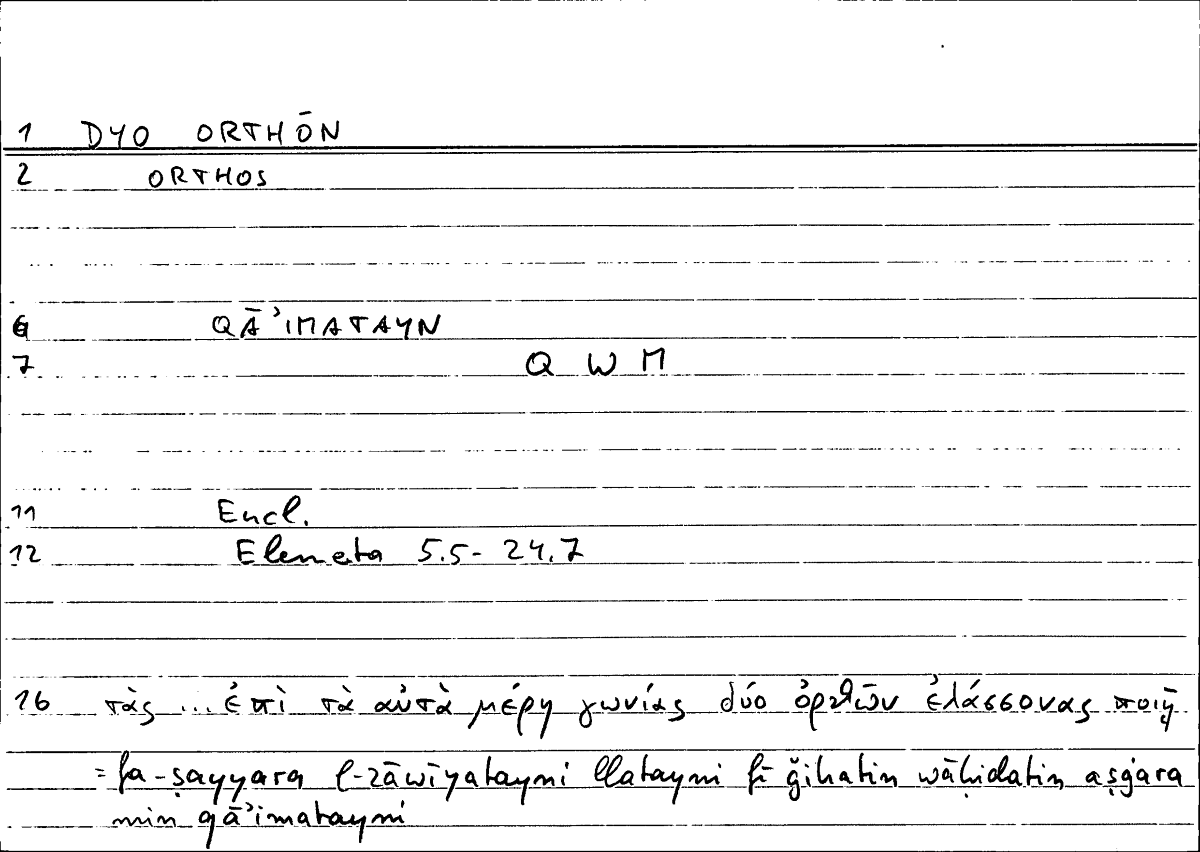 1 DYO ORTHŌN
2 ORTHOS
6 QĀʾIMATAYN
7 Q W M
11 Eucl.
12 Elementa 5.5 - 24.7
16 τὰς ... ἐπὶ τὰ αὐτὰ μέρη γωνίας δύο ὀρθῶν ἐλάσσονας ποιῇ
= fa-ṣayyara l-zāwīyatayni llatayni fī ǧihatin wāḥidatin aṣġara
min qāʾimatayni